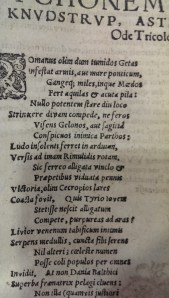 TYCHONEM
KNVDSTRVP, AST
Ode Tricolo
Omanus olim dum tumidos Getas
Infestat armis, aut mare ponticum,
Gangeq́; miles, inque Mædos
Fert aquilas & acuta pila:
Nullo potentem stare diu loco
Stringere divam compede, ne feros
Visens Gelonos, aut sagittâ
Conspicuos inimica Parthos:
Ludo insolenti ferret in arduum,
Versis ad imam Rimulidis rotam,
Sic ferreo alligata vinclo &
Præpetibus viduata pennis
Victoria, olim Cecropios lares
Coacta fovit, Quis Tyrio Iovem
Stetisse nescit alligatum
Compede, purpureas ad aras?
Livor venenum tabificum inimis
Serpens medullis, cuncta sibi ferens
Nil alteri; cœleste numen
Posse coli populos per omnes
Invidit, At non Dania Balthici
Superba framatrix pelagi cluens:
Non illa (quamvis